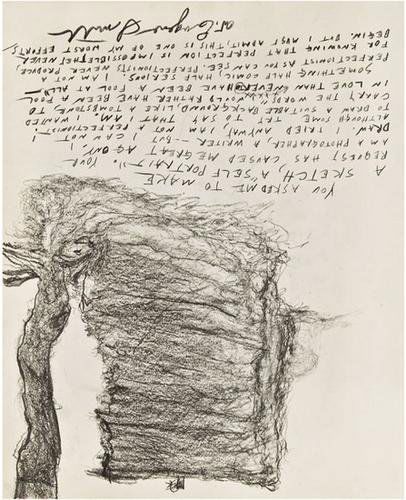 YOU ASKED ME TO MAKE
A SKETCH, A "SELF PORTRAIT". YOUR
REQUEST HAS CAUSED ME GREAT AGONY. I
AM A PHOTOGRAPHER, A WRITER — BUT I CAN NOT
DRAW. I TRIED ANYWAY. I AM NOT A PERFECTIONIST!
ALTHOUGH SOME TRY TO SAY THAT I AM. I WANTED
TO DRAW A SUITABLE BACKGROUND, LIKE A TOMBSTONE, TO
CARRY THE WORDS, "I WOULD RATHER HAVE BEEN A FOOL
IN LOVE THAN NEVER TO HAVE BEEN A FOOL AT ALL—
SOMETHING HALF COMIC, HALF SERIOUS. I AM NOT A
PERFECTIONIST AS YOU CAN SEE. PERFECTIONISTS NEVER PRODUCE,
FOR KNOWING THAT PERFECTION IS IMPOSSIBLE THEY NEVER
BEGIN. BUT I MUST ADMIT, THIS IS ONE OF MY WORST EFFORTS.
W. Eugene Smith